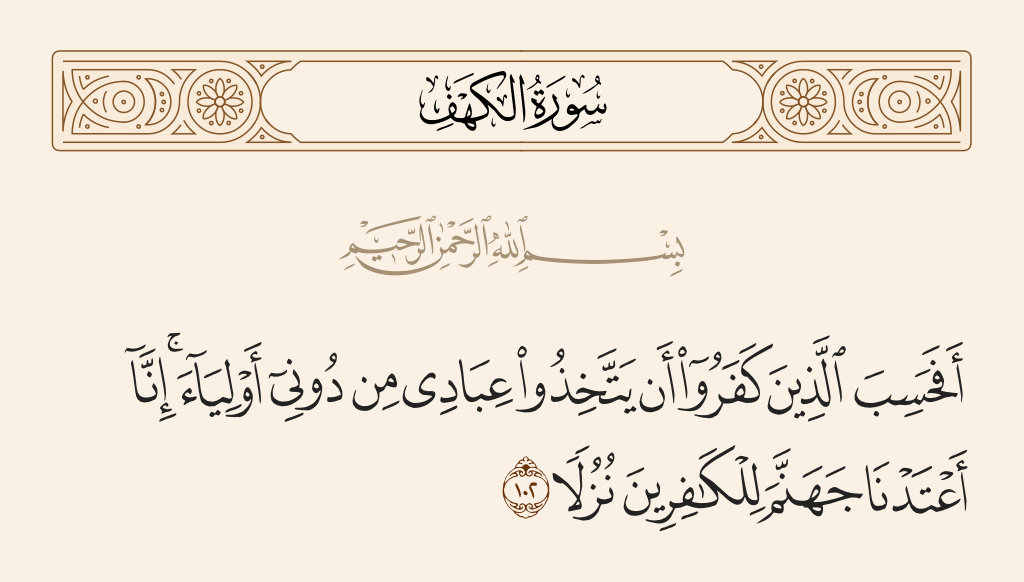 سُورَةُ الكَهۡفِ
بِسۡمِ ٱللَّهِ ٱلرَّحۡمَٰنِ ٱلرَّحِيمِ
أَفَحَسِبَ ٱلَّذِينَ كَفَرُوٓاْ أَن يَتَّخِذُواْ عِبَادِى مِن دُونِىٓ أَوۡلِيَآءَ ۚ إِنَّآ
أَعۡتَدۡنَا جَهَنَّمَ لِلۡكَٰفِرِينَ نُزُلًا ١٠٢